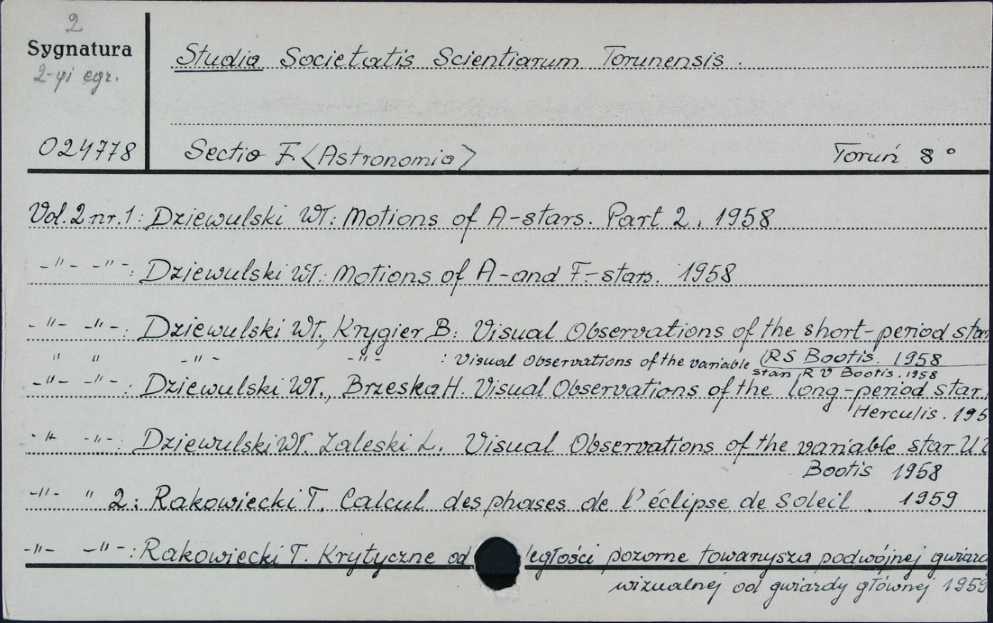 2
Sygnatura
2-gi egz.
Studia Societatis Scientiarum Torunensis.
024778
Sectio F. <Astronomia>
Toruń 8°
Vol. 2 nr. 1: Dziewulski Wł.: Motions of A-stars. Part 2. 1958
-"- -"-: Dziewulski Wł.: Motions of A-and F-stars. 1958
-"- -"-: Dziewulski Wł., Krygier B: Visual Observations of the short-period star
RS Bootis. 1958
" " -"- -"- : Visual Observations of the variable
star RV Bootis. 1958
-"- -"-: Dziewulski Wł., Brzeska H. Visual Observations of the long-period star
Herculis. 195
-"- -"-: Dziewulski Wł. Zaleski L. Visual Observations of the variable star U
Bootis 1958
-"- " 2: Rakowiecki T. Calcul des phases de l'éclipse de Soleil. 1959
-"- -"-: Rakowiecki T. Krytyczne od ległości pozorne towarzysza podwójnej gwiazd
wizualnej od gwiazdy głównej 1959